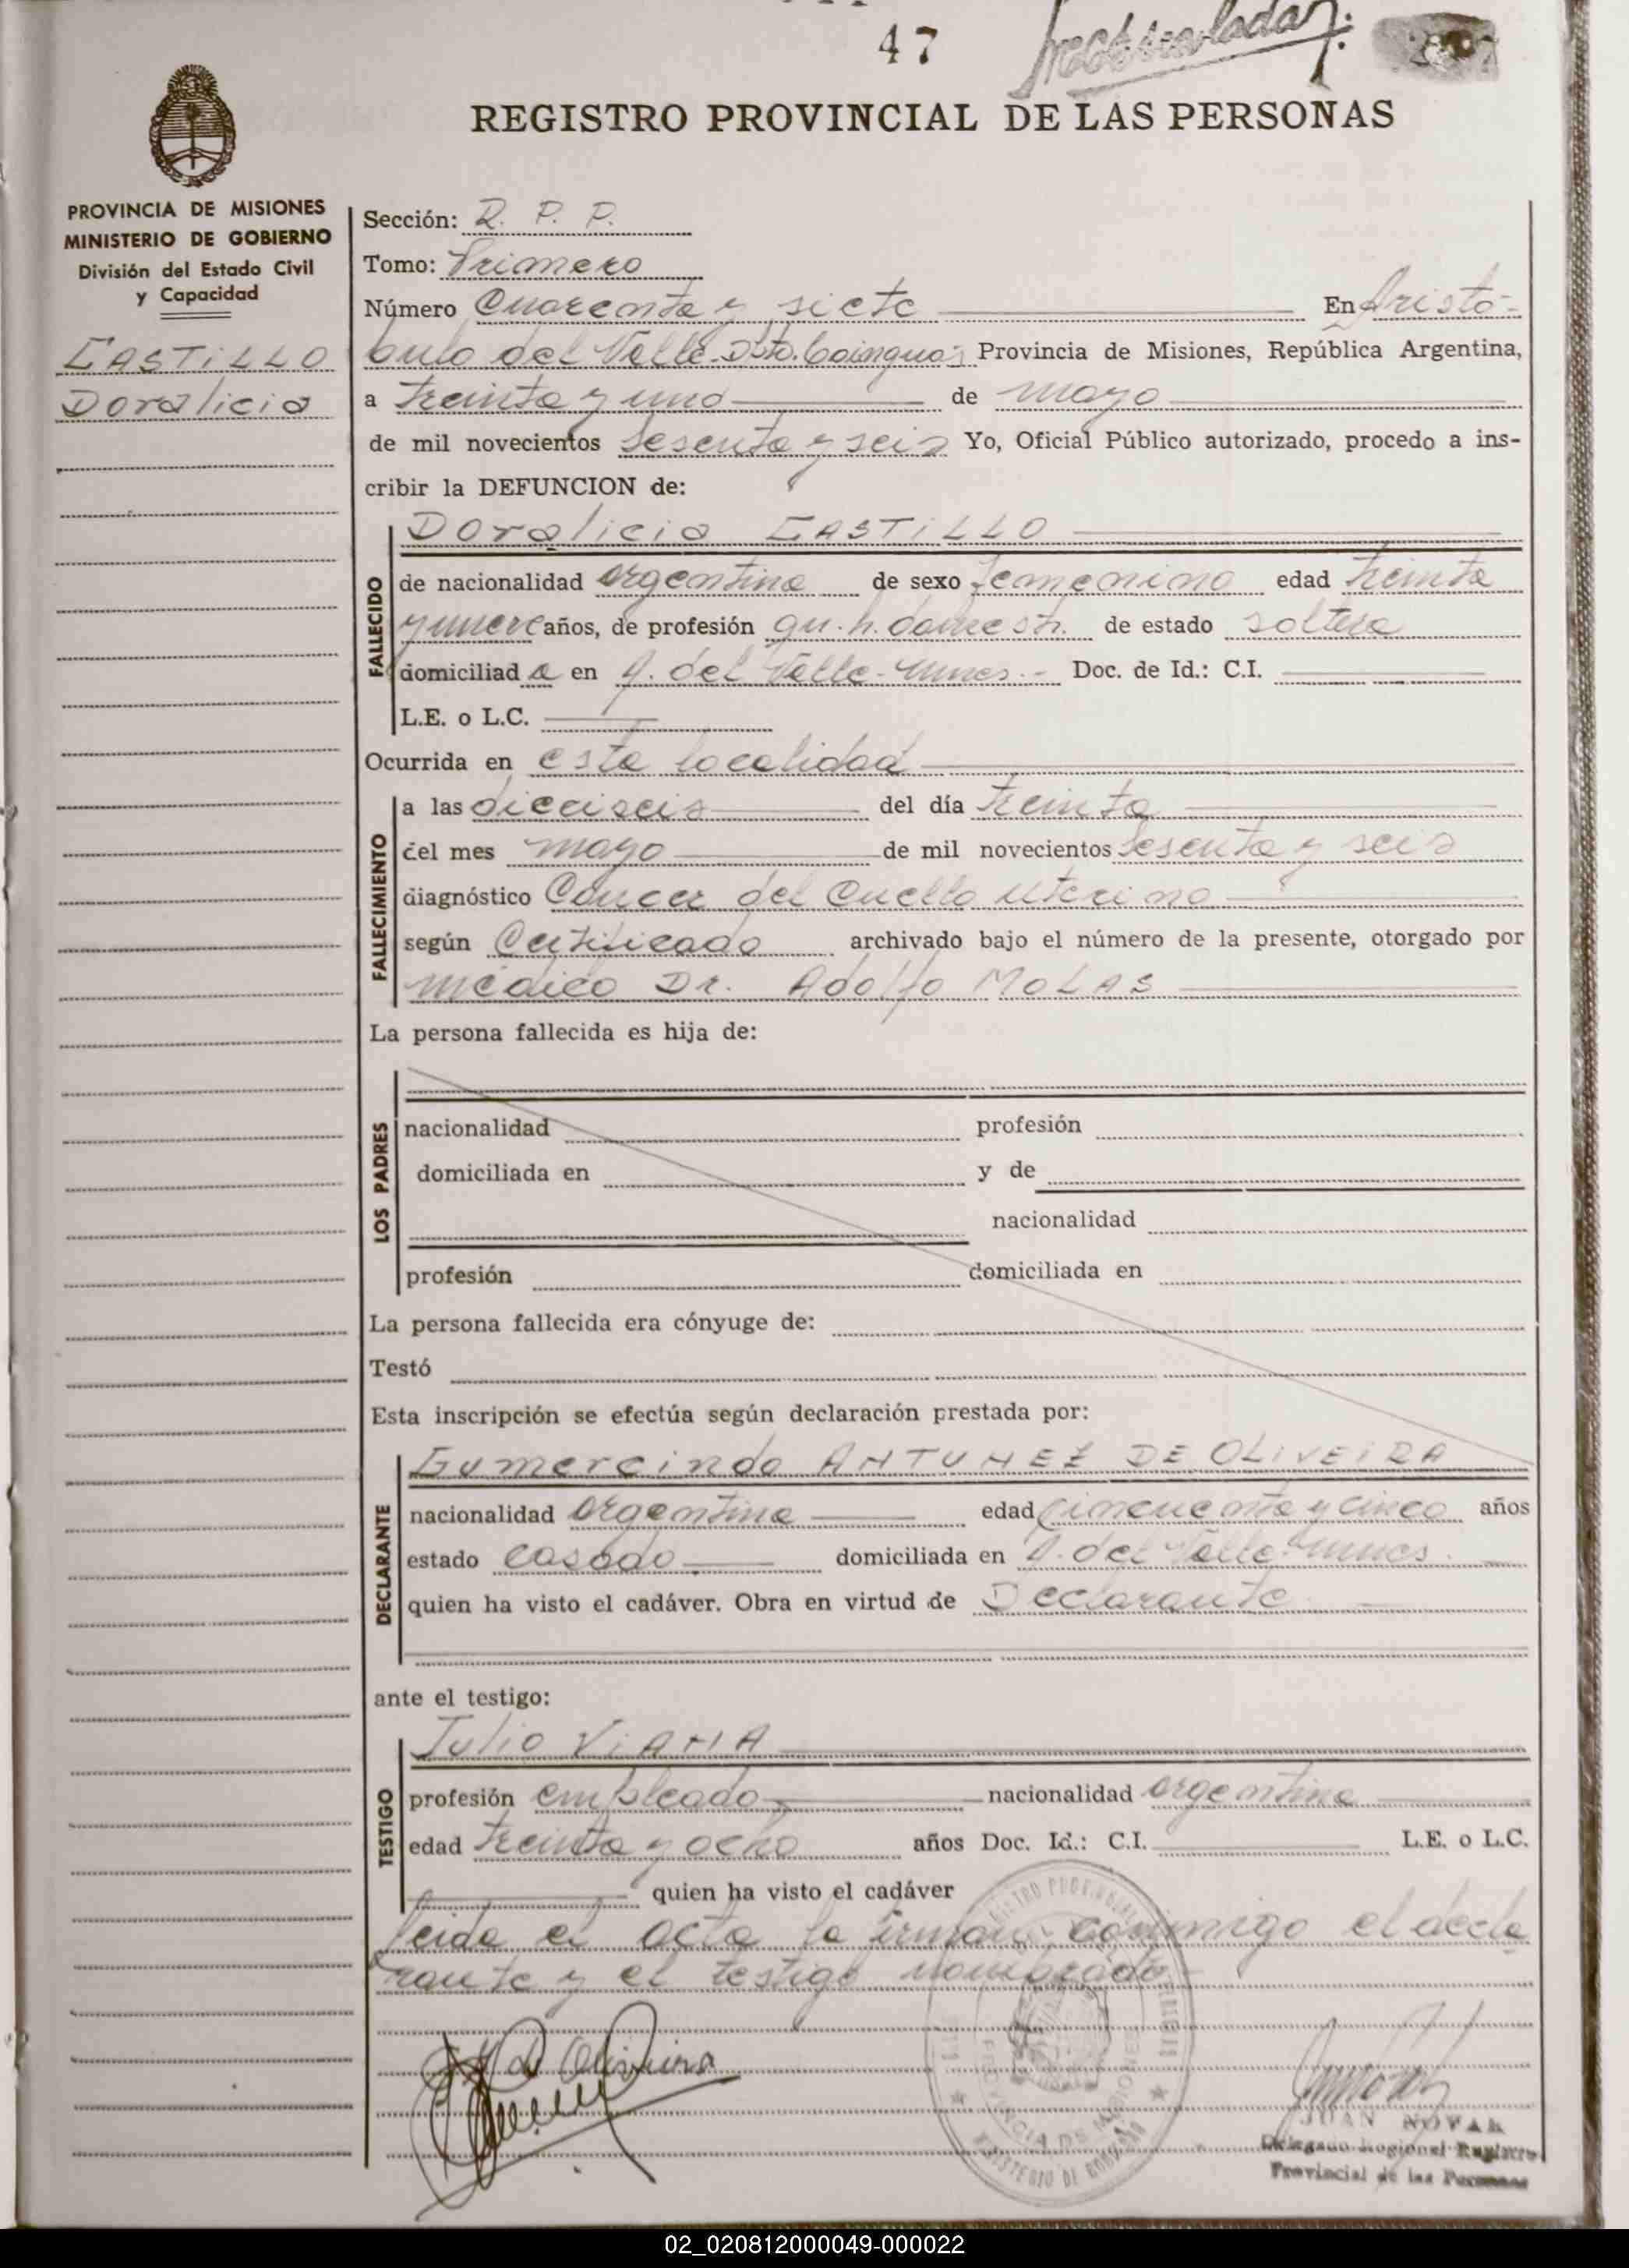 47
REGISTRO PROVINCIAL DE LAS PERSONAS
PROVINCIA DE MISIONES
MINISTERIO DE GOBIERNO
División del Estado Civil
y Capacidad
CASTiLLO
Doralicia
Sección: R. P. P.
Tomo: Primero
Número Cuarenta y siete En Aristó-
bulo del Valle-Dto. Cainguas Provincia de Misiones, República Argentina,
a treinta y uno de mayo
de mil novecientos sesenta y seis Yo, Oficial Público autorizado, procedo a ins-
cribir la DEFUNCION de:
Doralicia CASTiLLO
FALLECIDO
de nacionalidad argentina de sexo femenino edad treinta
y nueve años, de profesión domestr. de estado soltera
domiciliad a en A. del Valle- Mnes.- Doc. de Id.: C.I.
L.E. o L.C.
Ocurrida en esta localidad
FALLECIMIENTO
a las dieciseis del día treinta
del mes mayo de mil novecientos sesenta y seis
diagnóstico Cáncer del Cuello uterino
según Certificado archivado bajo el número de la presente, otorgado por
médico Dr. Adolfo MOLAS
La persona fallecida es hija de:
LOS PADRES
nacionalidad profesión
domiciliada en y de
nacionalidad
profesión domiciliada en
La persona fallecida era cónyuge de:
Testó
Esta inscripción se efectúa según declaración prestada por:
DECLARANTE
Gumercindo ANTUNEZ DE OLiVEiRA
nacionalidad argentina edad cincuenta y cinco años
estado casado domiciliada en A. del Valle-Mnes
quien ha visto el cadáver. Obra en virtud de Declarante
ante el testigo:
TESTIGO
Julio ViANA
profesión empleado nacionalidad argentina
edad treinta y ocho años Doc. Id.: C.I. L.E. o L.C.
quien ha visto el cadáver
leida el acta la firman conmigo el decla
rante y el testigo nombrado
JUAN NOVAK
Delegado Regional Registro
Provincial de las Personas
02_020812000049-000022